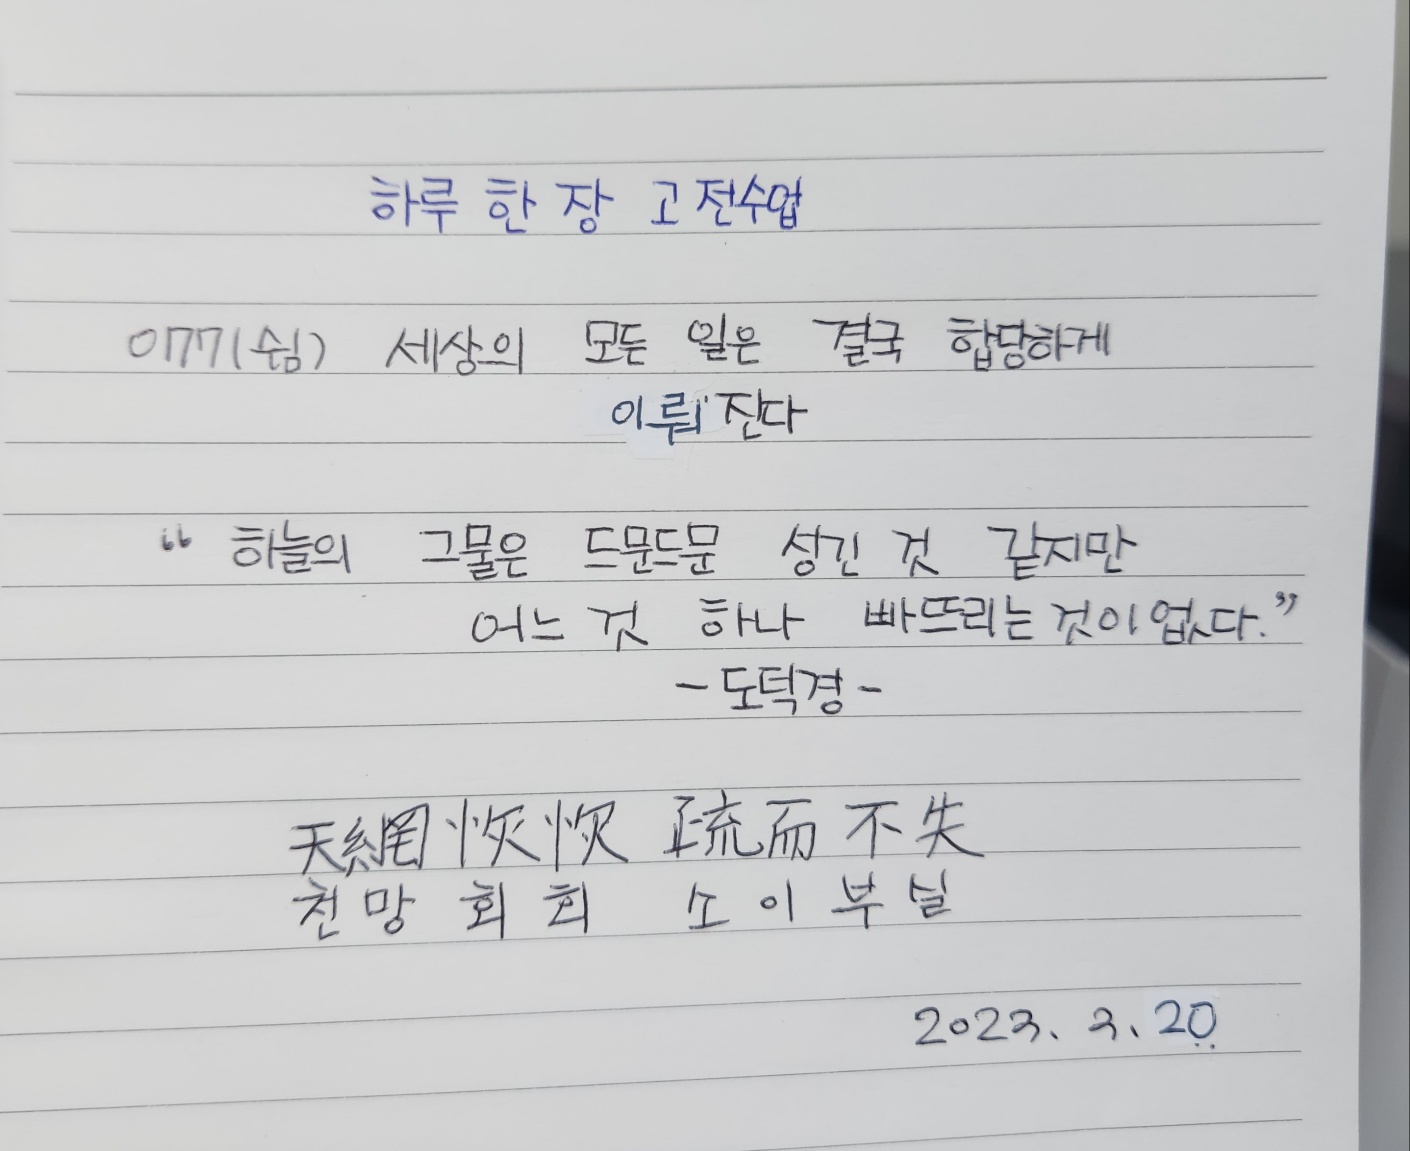 하루 한 장 고전수업
077(쉼) 세상의 모든 일은 결국 합당하게
이뤄진다
“하늘의 그물은 드문드문 성긴 것 같지만
어느 것 하나 빠뜨리는 것이 없다.”
-도덕경-
天網恢恢 疏而不失
천망회회 소이부실
2023. 3. 20